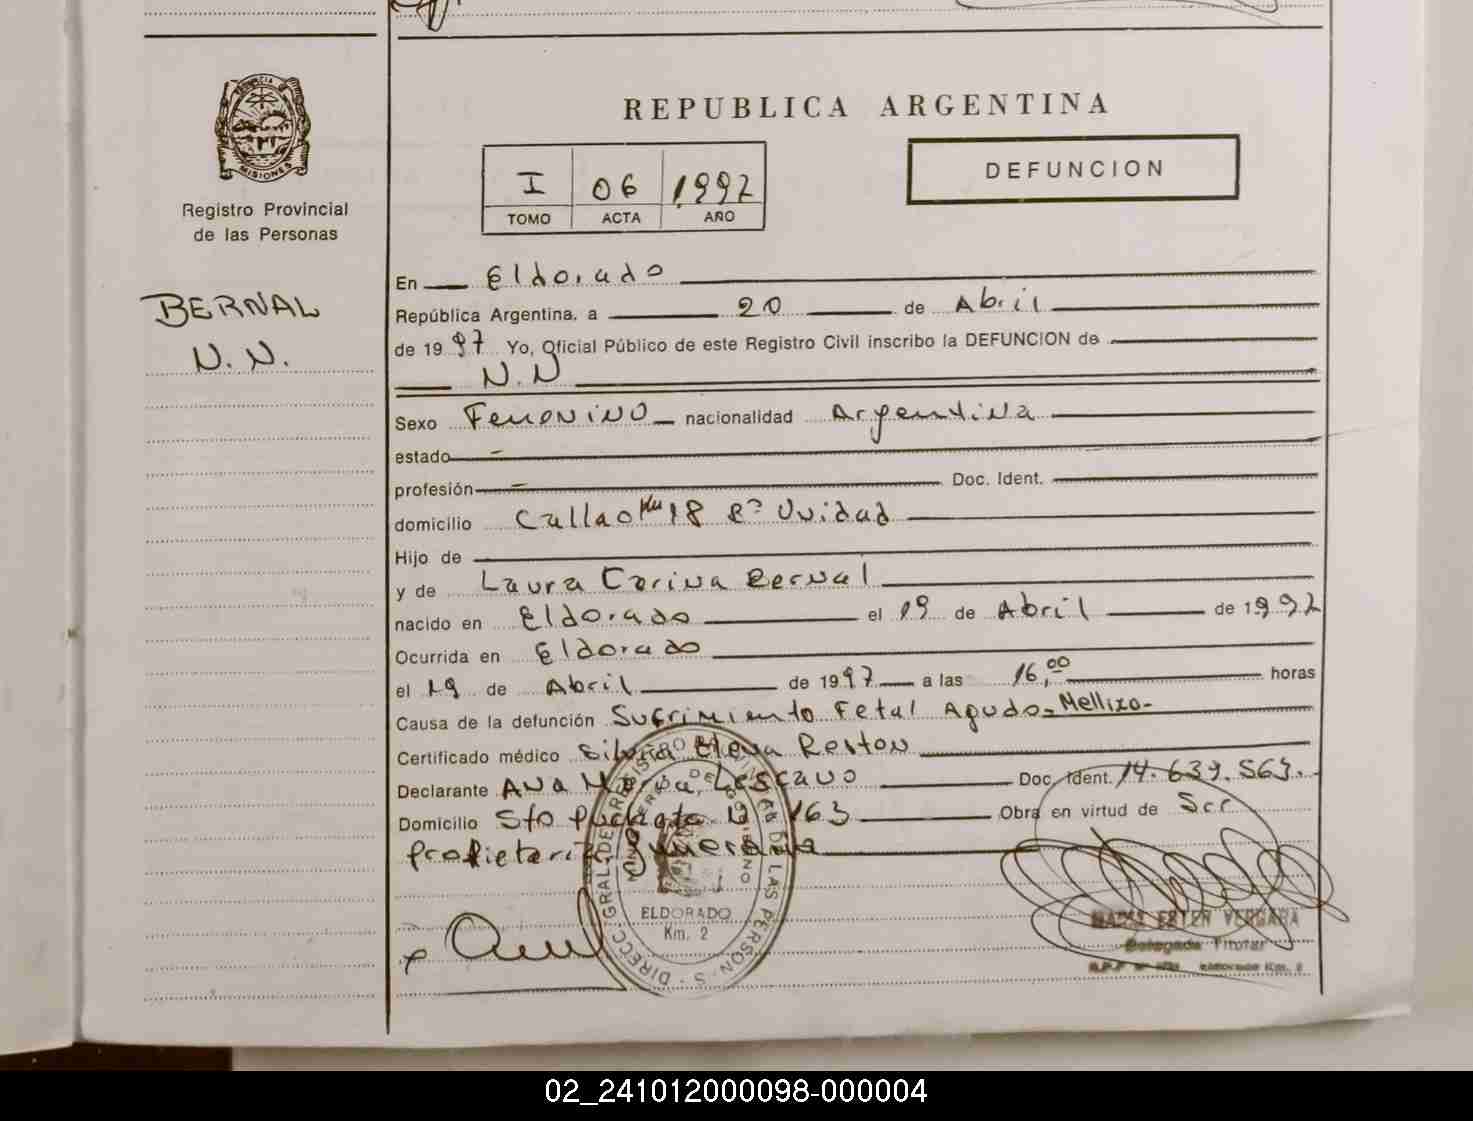 REPUBLICA ARGENTINA
MISIONES
Registro Provincial
de las Personas
BERNAL
N.N.
I 06 1992
TOMO ACTA AÑO
DEFUNCION
En Eldorado
República Argentina, a 20 de Abril
de 1997 Yo, Oficial Público de este Registro Civil inscribo la DEFUNCION de
N.N
Sexo Femenino nacionalidad Argentina
estado -
profesión - Doc. Ident.
domicilio Callao Km 18 Unidad
Hijo de
y de Laura Corina Bernal
nacido en Eldorado el 19 de Abril de 1992
Ocurrida en Eldorado
el 19 de Abril de 1997 a las 16,00 horas
Causa de la defunción Sufrimiento Fetal Agudo - Mellizo -
Certificado médico Silvia Elena Reston
Declarante Ana María Lescano Doc. Ident. 14.639.563.-
Domicilio Sto 163 Obra en virtud de Ser
propietaria funeraria
ELDORADO
Km. 2
ESTER VERGARA
Delegada Titular
ELDORADO Km. 2
02_241012000098-000004